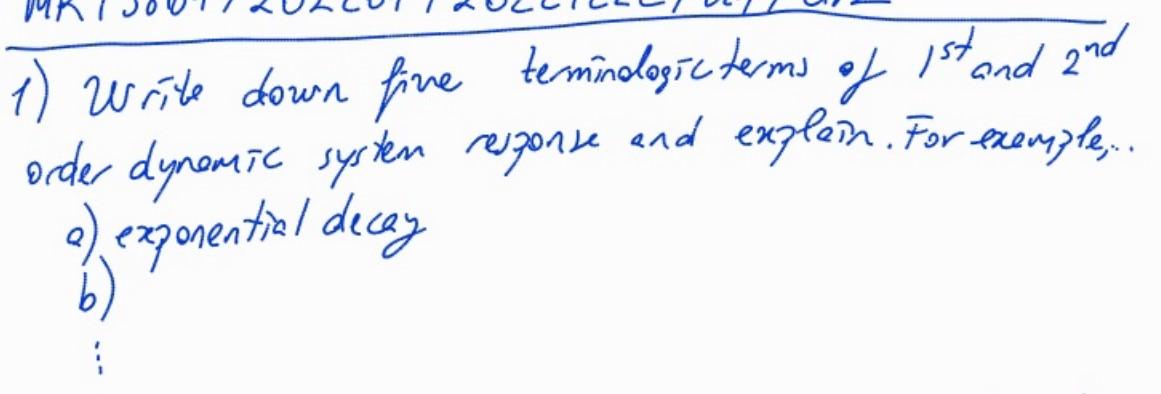 1) Write down five terminologic terms of 1st and 2nd
order dynamic system response and explain. For example,..
a) exponential decay
b)
⋮